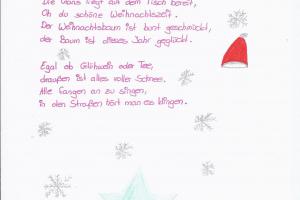 Die Gans liegt auf dem Tisch bereit,
Oh du schöne Weihnachtszeit.
Der Weihnachtsbaum ist bunt geschmückt,
der Baum ist dieses Jahr geglückt.
Egal ob Glühwein oder Tee,
draußen ist alles voller Schnee.
Alle fangen an zu singen,
in den Straßen hört man es klingen.